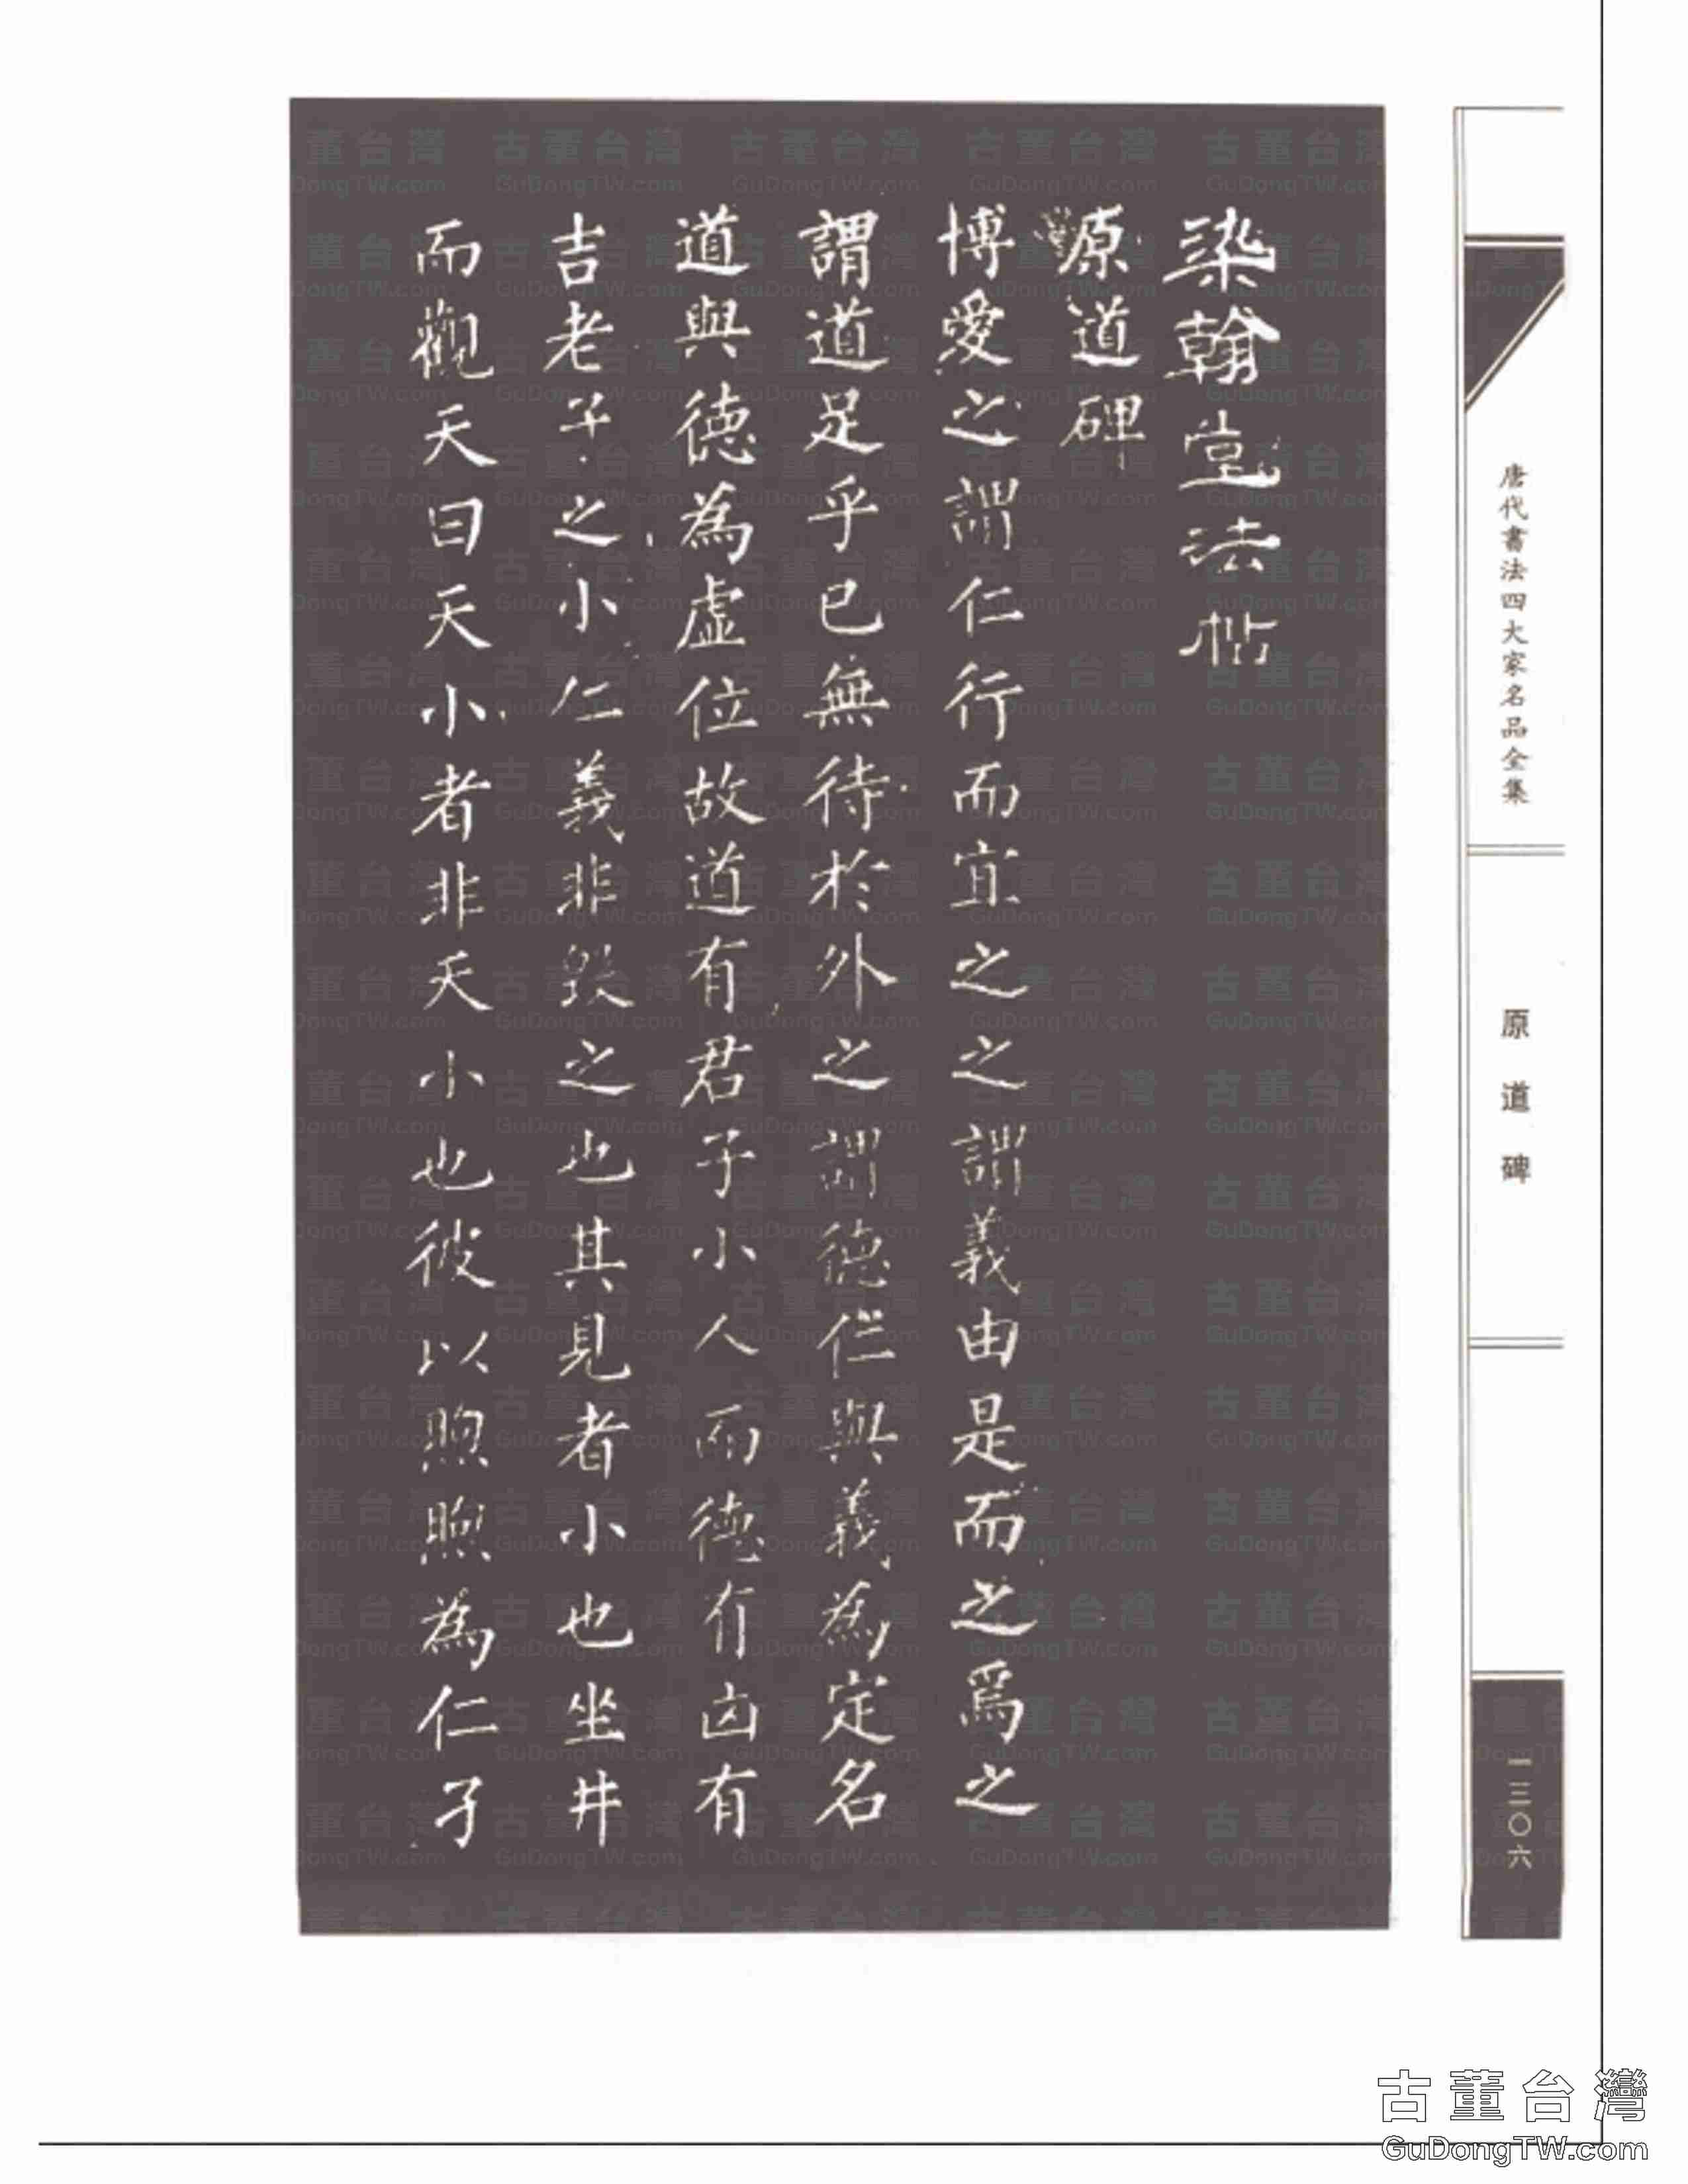 染翰堂法帖
原道碑
博愛之謂仁行而宜之之謂義由是而之焉之
謂道足乎已無待於外之謂德仁與義為定名
道與德為虛位故道有君子小人而德有凶有
吉老子之小仁義非毀之也其見者小也坐井
而觀天曰天小者非天小也彼以煦煦為仁孑
唐代書法四大家名品全集
原道碑
一三〇六
古董台灣
GuDongTW.com